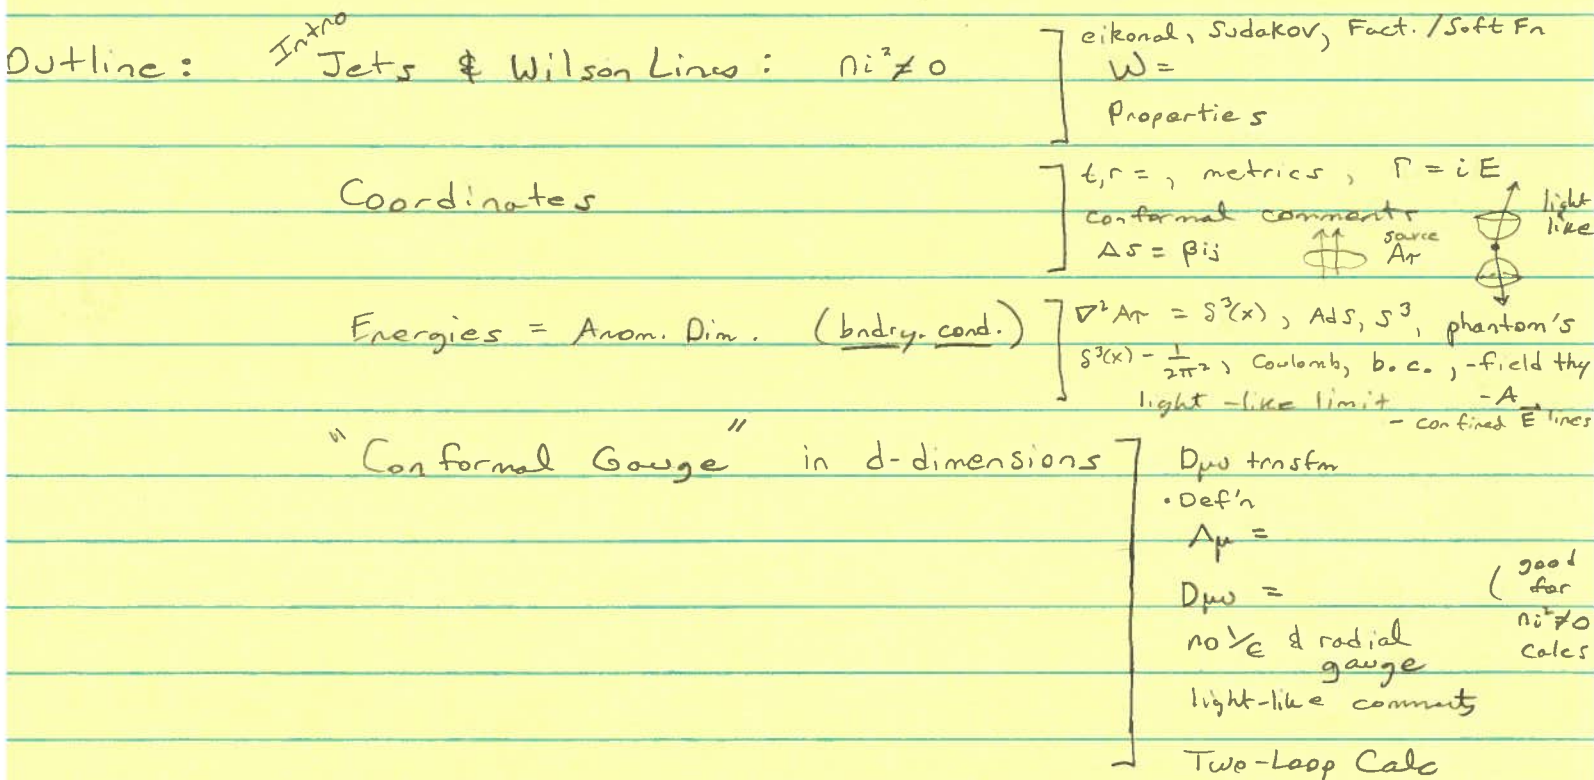 Outline: Intro Jets & Wilson Lines: ni²≠0
eikonal, Sudakov, Fact./Soft Fn
W =
Properties
Coordinates
t,r = , metrics, Γ = iE
conformal comments
Δs = βij
source
Aτ
light
like
Energies = Anom. Dim. (bndry. cond.)
∇²Aτ = δ³(x), AdS, S³, phantom's
δ³(x) - 1/2π², Coulomb, b.c., -field thy
light-like limit - A
- confined E⃗ lines
"Conformal Gauge" in d-dimensions
Dμν trnsfm
• Def'n
Λμ =
Dμν =
(good
for
ni²≠0
calcs
no 1/ε & radial
gauge
light-like comments
Two-Loop Calc